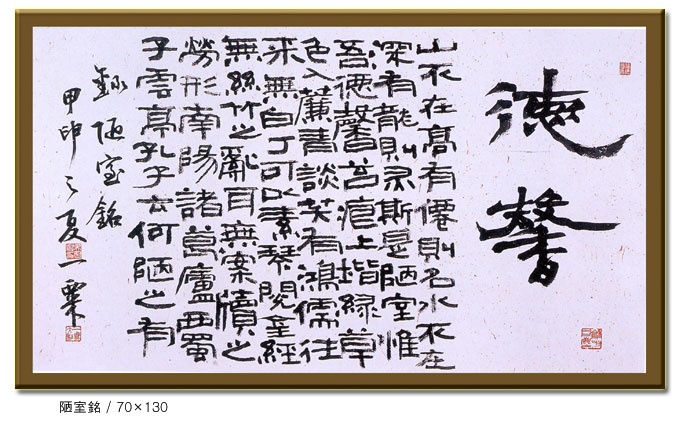 德馨
山不在高有僊則名水不在
深有龍則灵斯是陋室惟
吾德馨苔痕上堦綠草
色入簾青談笑有鴻儒往
來無白丁可以素琴閱金經
無絲竹之亂耳無案牘之
勞形南陽諸葛廬西蜀
子雲亭孔子云何陋之有
錄陋室銘
甲申之夏一粟
陋室銘 / 70×130